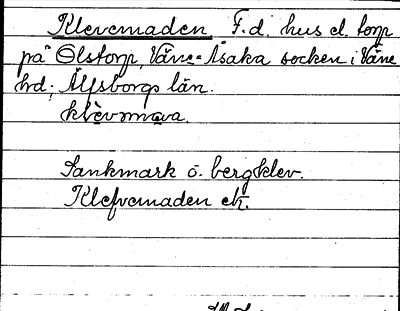 Klevemaden F.d. hus el. torp
på Olstorp, Väne-Åsaka socken i Väne
hrd; Älfsborgs län.
klèvəmàva.
Sankmark o. bergklev.
Klefvemaden ek.